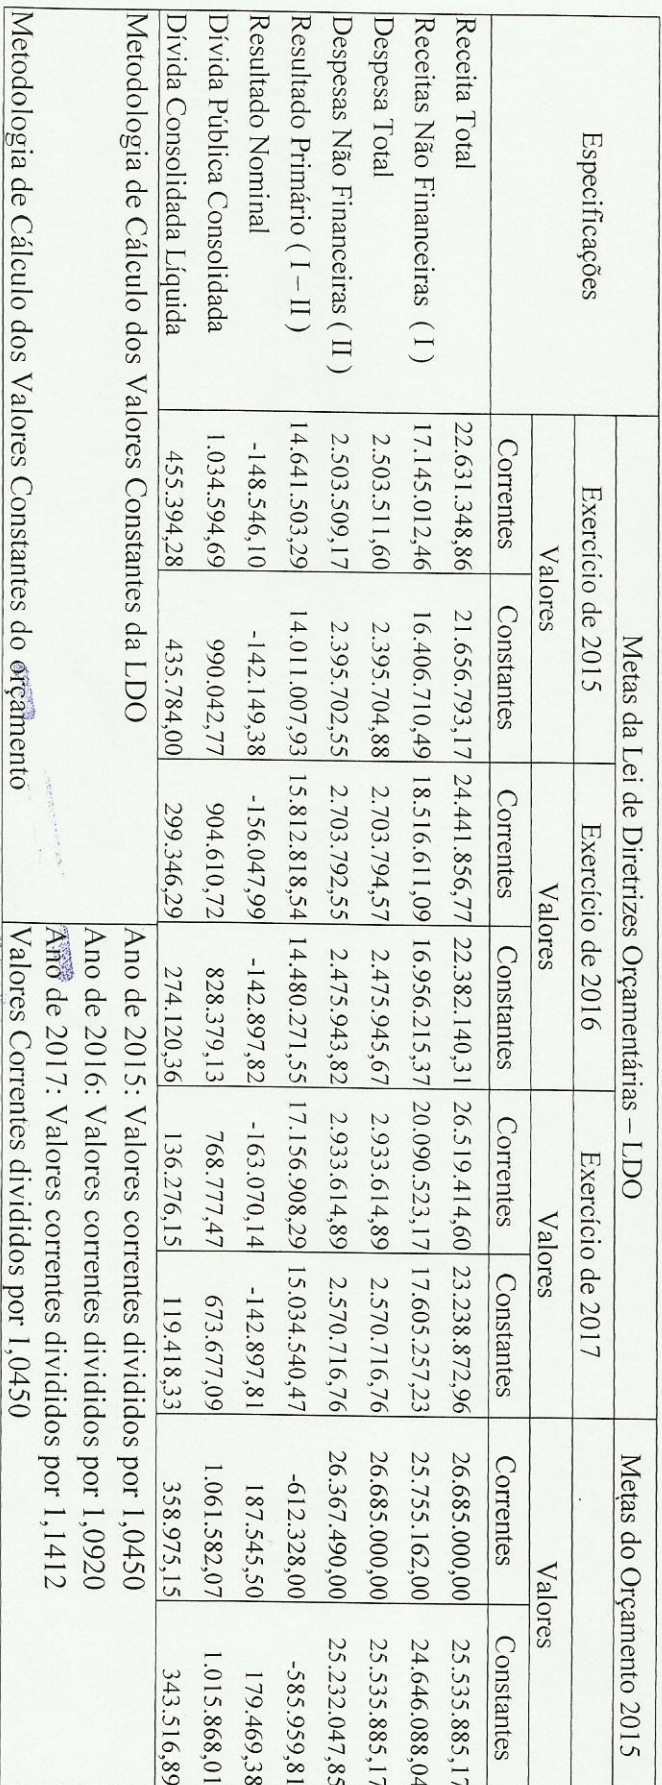 Especificações Metas da Lei de Diretrizes Orçamentárias – LDO Metas do Orçamento 2015
Exercício de 2015 Exercício de 2016 Exercício de 2017
Valores Valores Valores Valores
Correntes Constantes Correntes Constantes Correntes Constantes Correntes Constantes
Receita Total 22.631.348,86 21.656.793,17 24.441.856,77 22.382.140,31 26.519.414,60 23.238.872,96 26.685.000,00 25.535.885,17
Receitas Não Financeiras ( I ) 17.145.012,46 16.406.710,49 18.516.611,09 16.956.215,37 20.090.523,17 17.605.257,23 25.755.162,00 24.646.088,04
Despesa Total 2.503.511,60 2.395.704,88 2.703.794,57 2.475.945,67 2.933.614,89 2.570.716,76 26.685.000,00 25.535.885,17
Despesas Não Financeiras ( II ) 2.503.509,17 2.395.702,55 2.703.792,55 2.475.943,82 2.933.614,89 2.570.716,76 26.367.490,00 25.232.047,85
Resultado Primário ( I – II ) 14.641.503,29 14.011.007,93 15.812.818,54 14.480.271,55 17.156.908,29 15.034.540,47 -612.328,00 -585.959,81
Resultado Nominal -148.546,10 -142.149,38 -156.047,99 -142.897,82 -163.070,14 -142.897,81 187.545,50 179.469,38
Dívida Pública Consolidada 1.034.594,69 990.042,77 904.610,72 828.379,13 768.777,47 673.677,09 1.061.582,07 1.015.868,01
Dívida Consolidada Líquida 455.394,28 435.784,00 299.346,29 274.120,36 136.276,15 119.418,33 358.975,15 343.516,89
Metodologia de Cálculo dos Valores Constantes da LDO Ano de 2015: Valores correntes divididos por 1,0450
Ano de 2016: Valores correntes divididos por 1,0920
Ano de 2017: Valores correntes divididos por 1,1412
Metodologia de Cálculo dos Valores Constantes do orçamento Valores Correntes divididos por 1,0450